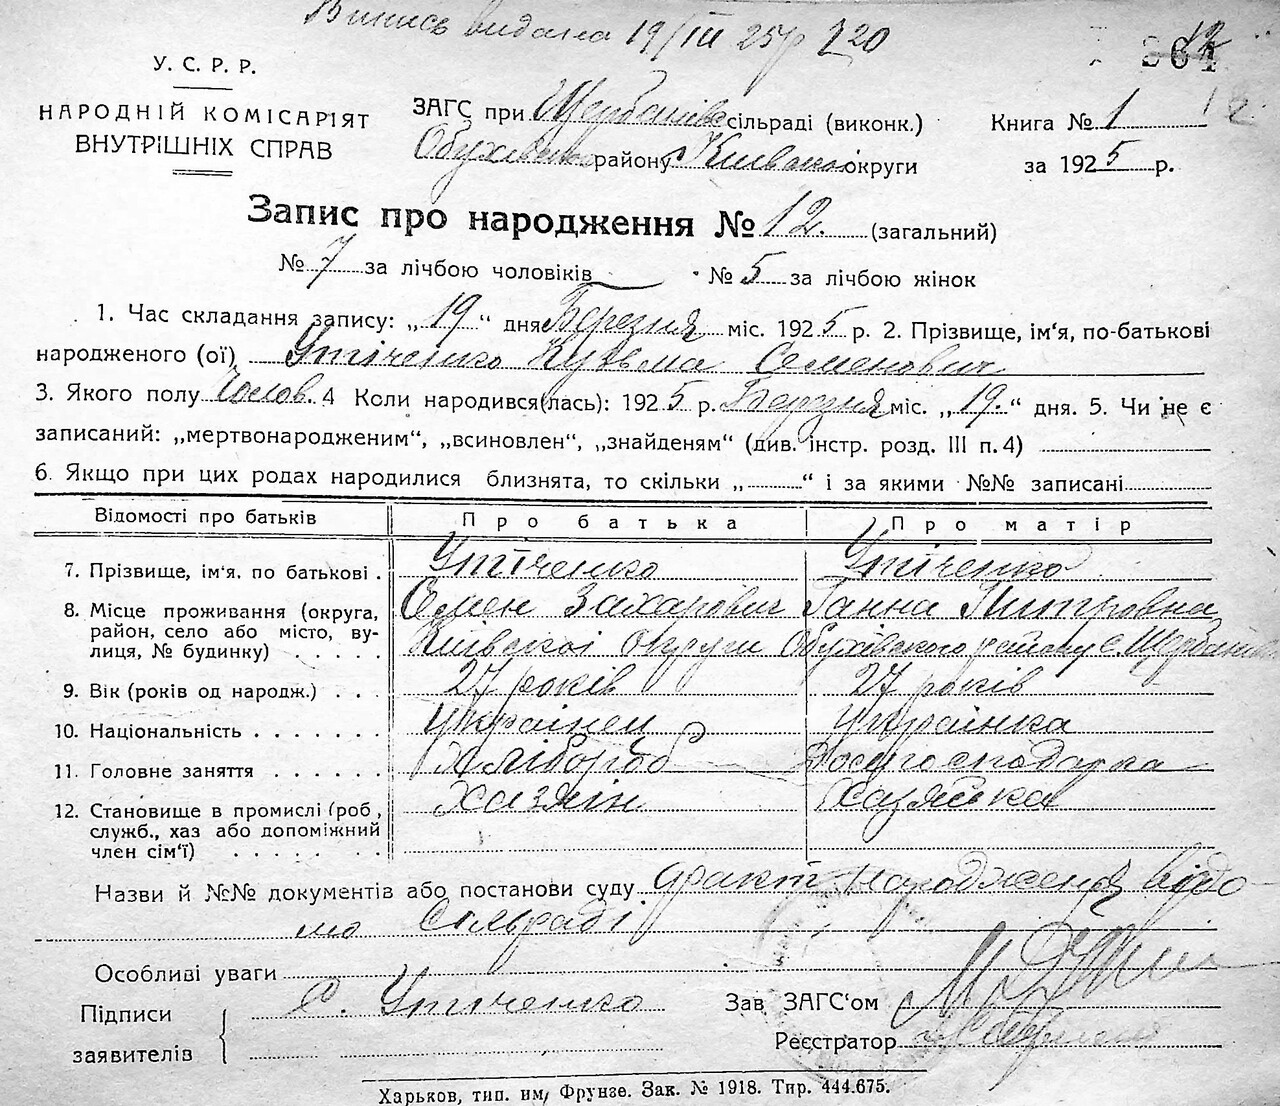 Випись видана 19/III 25 р 220
У. С. Р. Р.
НАРОДНІЙ КОМІСАРІЯТ
ВНУТРІШНІХ СПРАВ
ЗАГС при Щербанівс сільраді (виконк.)
Обухівсько району Київської округи
Книга № 1
за 1925 р.
Запис про народження № 12. (загальний)
№ 7 за лічбою чоловіків № 5 за лічбою жінок
1. Час складання запису: „19“ дня Березня міс. 1925 р. 2. Прізвище, ім'я, по-батькові
народженого (ої) Утіченко Кузьма Семенович
3. Якого полу Чолов. 4 Коли народився(лась): 1925 р. Березня міс. „19.“ дня. 5. Чи не є
записаний: „мертвонародженим“, „всиновлен“, „знайденям“ (див. інстр. розд. III п. 4)
6. Якщо при цих родах народилися близнята, то скільки „......“ і за якими №№ записані
Відомості про батьків Про батька Про матір
7. Прізвище, ім'я. по батькові . Утіченко Утіченко
Семен Захарович Ганна Питровна
8. Місце проживання (округа, район, село або місто, вулиця, № будинку) . . . . . Київської округи Обухівського району с. Щербанівка
9. Вік (років од народж.) . . . 27 років 27 років
10. Національність . . . . . . . Українец Українка
11. Головне заняття . . . . . . Хлібороб Домогосподарка
12. Становище в промислі (роб, служб., хаз або допоміжний член сім'ї) . . . . . . . Хазяїн Хазяйка
Назви й №№ документів або постанови суду факт народження відо-
мо Сільраді
Особливі уваги
Підписи
заявителів
С. Утіченко
Зав ЗАГС'ом
Реєстратор
Харьков, тип. им, Фрунзе. Зак. № 1918. Тир. 444.675.